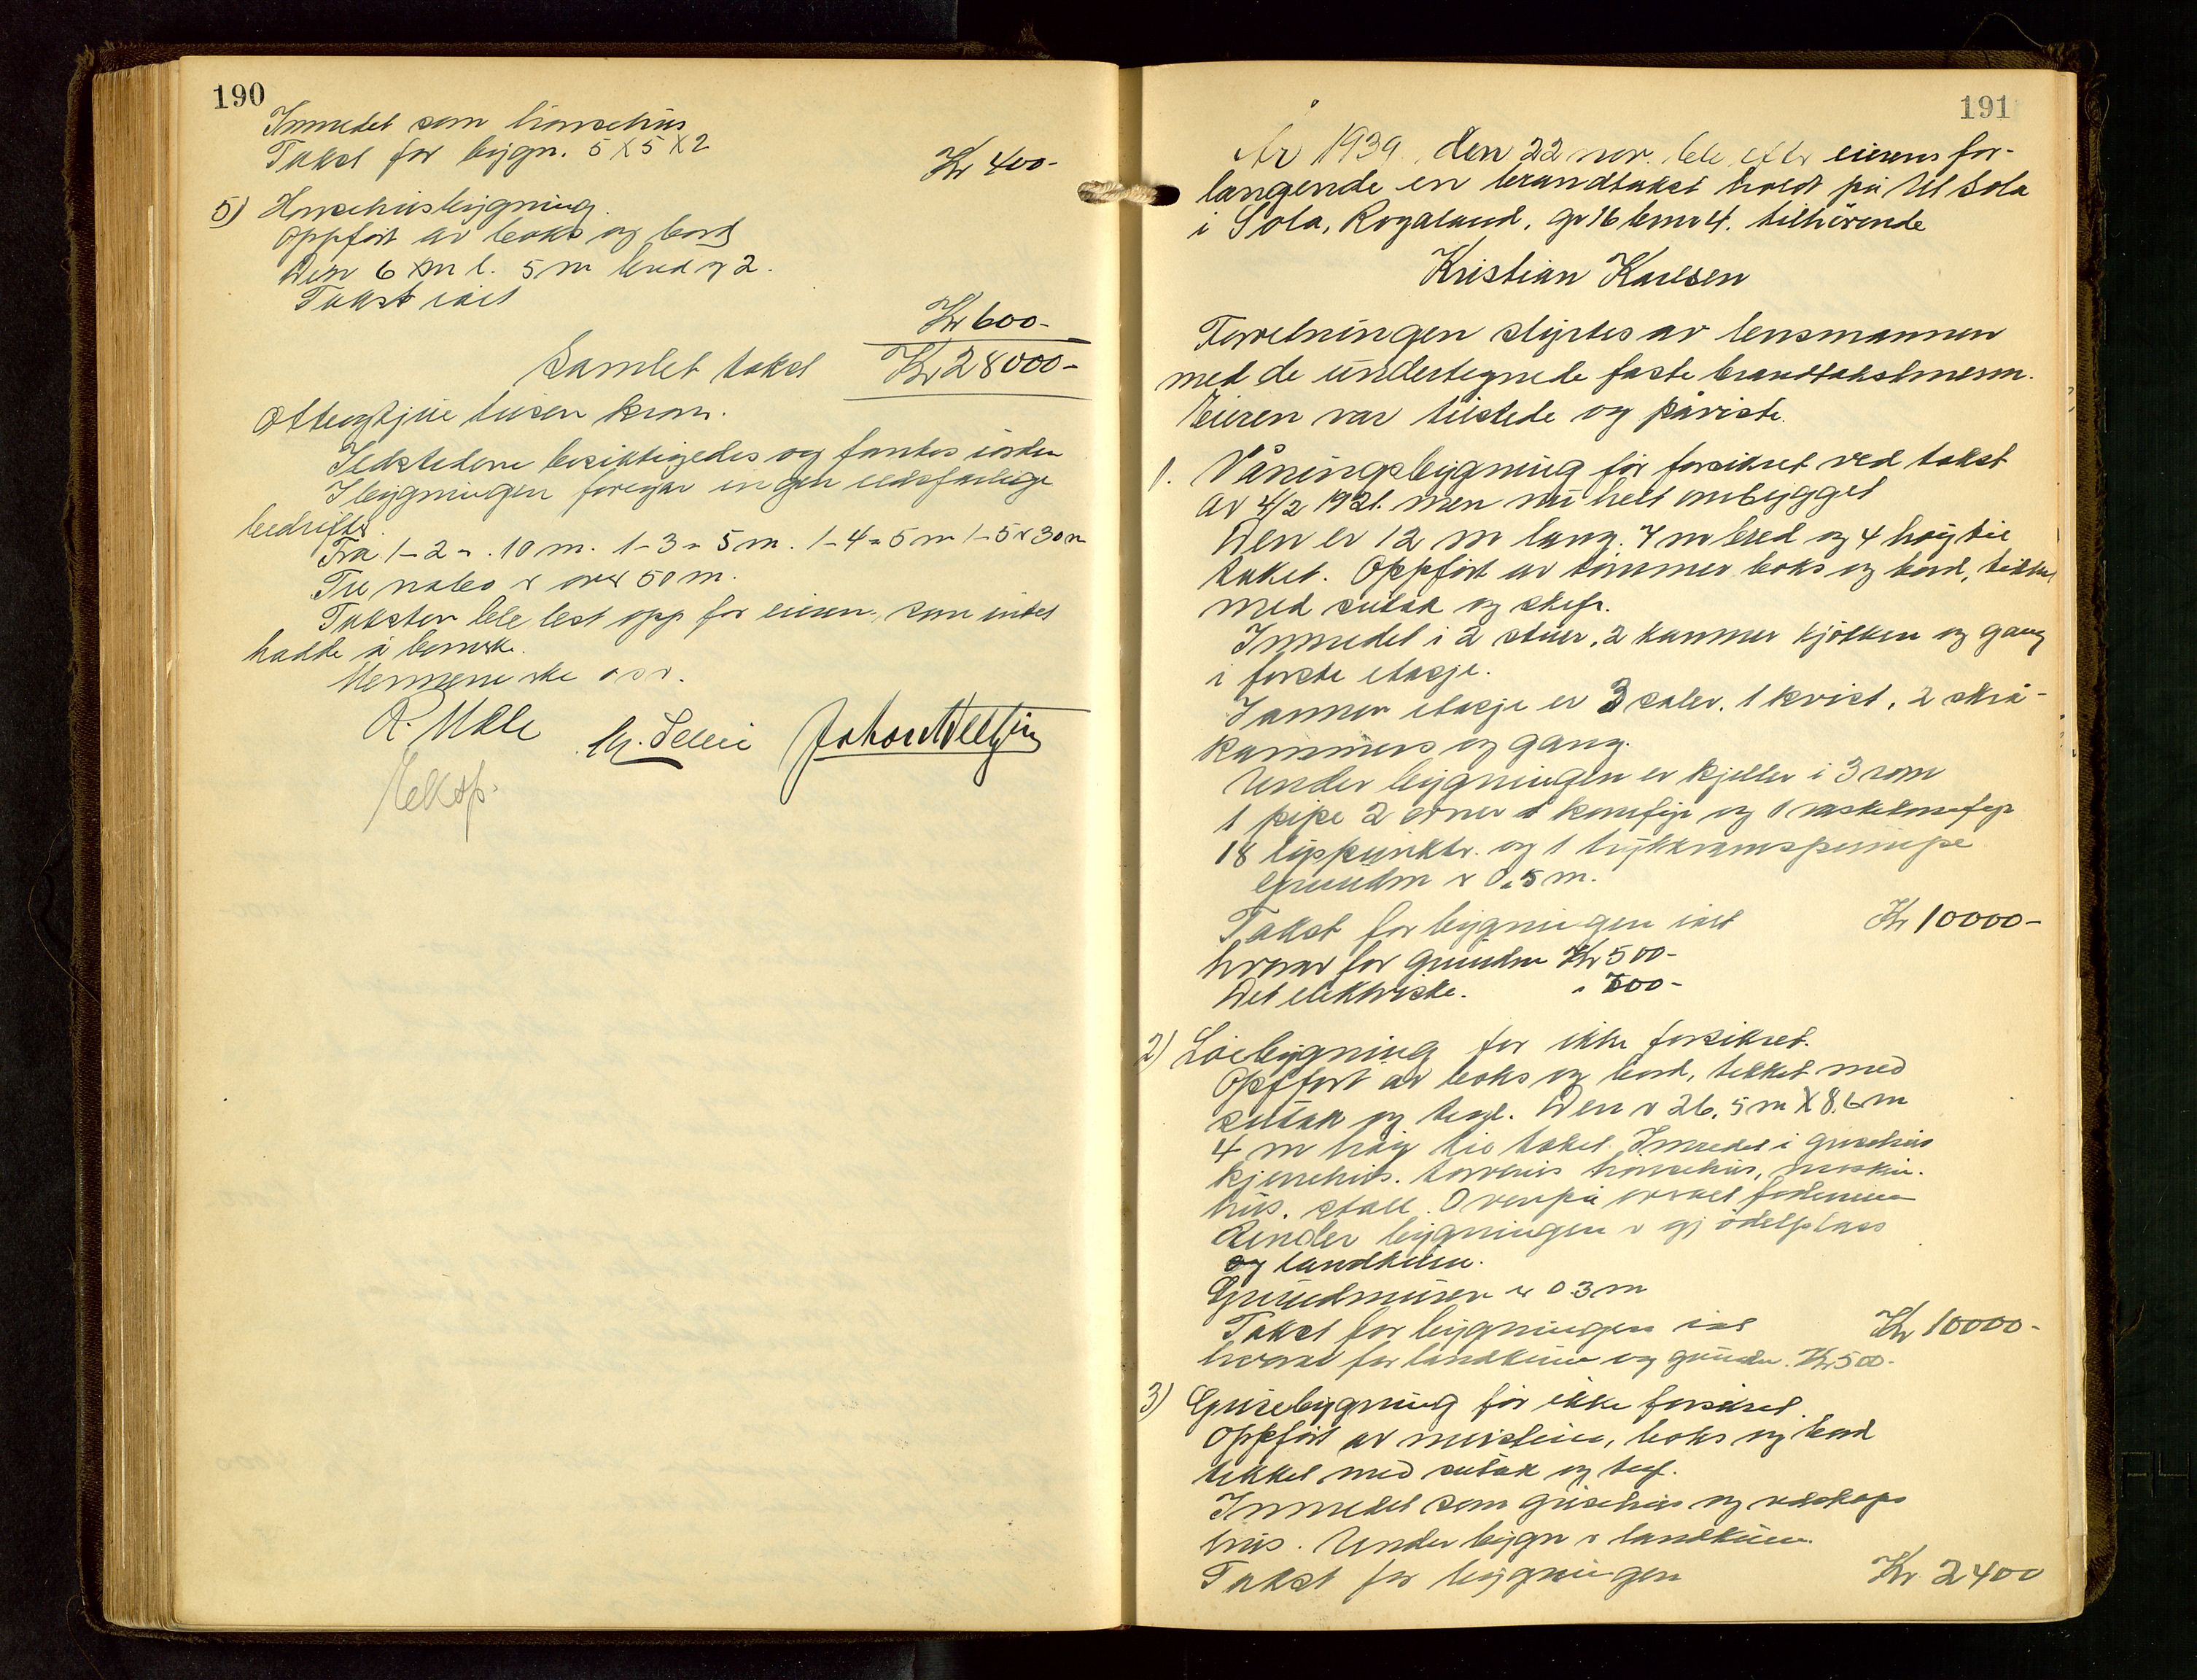 190
Innredet som hönsehus
Takst for bygn. 5 X 5 X 2
Kr 400-
5) Hönsehusbygning.
Oppfört av boks og bord
Den 6 m l. 5 m bred og 2.
Takst ialt
Kr 600-
Samlet takst Kr 28000-
Otteogtjue tusen kron.
Ildstedene besiktigedes og fantes iorden
I bygningen foregår ingen ildsfarlige
bedrifter.
Fra 1-2 = 10 m. 1-3 = 5 m. 1-4 = 5 m 1-5 = 30 m
Til nabo er over 50 m.
Taksten ble lest opp for eieren, som intet
hadde å bemerke.
R. Malde
Johan
Eksp.
191
År 1939, den 22 nov. ble efter eierens for-
langende en brandtakst holdt på Ut Sola
i Sola, Rogaland, gr 16 bnr 4. tilhörende
Kristian Karlsen
Forretningen styrtes av lensmannen
med de undertegnede faste brandtakstmenn.
Eieren var tilstede og påviste.
1. Våningsbygning för forsikret ved takst
av 4/2 1921. men nu helt ombygget
Den er 12 m lang. 7 m bred og 4 høy til
taket. Oppfört av tömmer boks og bord, tekket
med sutak og skifr.
Innredet i 2 stuer, 2 kammer kjökken og gang
i förste etasje.
I annen etasje er 3 saler, 1 kvist, 2 skrå-
kammers og gang.
Under bygningen er kjeller i 3 rom
1 pipe 2 ovner 1 komfyr og 1 vaskekomfyr
18 lyspunkter og 1 trykkvannspumpe
Grundm er 0,5 m.
Takst for bygningen ialt Kr 10000-
hvorav for grundm Kr 500-
Det elektriske. " 700-
2) Löebygning för ikke forsikret.
Oppfört av boks og bord, tekket med
sutak og tegl. Den er 26,5 m X 8,6 m
4 m høy til taket. Innredet i grisehus
torvhus hönsehus, maskin-
hus, stall. Ovenpå
Under bygningen er gjödelplass
og landkum.
Grundmuren er 0.3 m
Takst for bygningen ialt Kr 10000-
hvorav for landkum og grundm. Kr 500-
3) Grisebygning för ikke forsikret.
Oppfört av murstein, boks og bord
tekket med sutak og tegl.
Innredet som grisehus og redskaps
hus. Under bygn er landkum.
Takst for bygningen Kr 2400